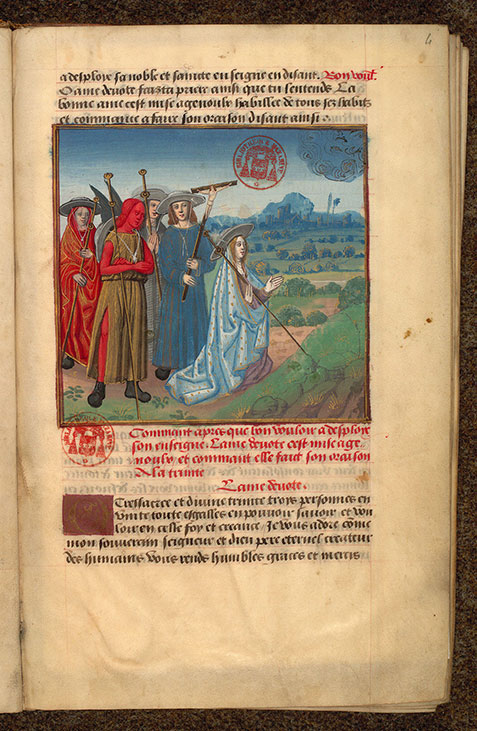 a desploye sa noble et saincte enseigne en disant. Bon voul.
O ame devote fay ta priere ainsi que tu sentends La
bonne ame est mise a genoulz habillee de tous ses habitz
et commence a faire son oraison disant ainsi.
Comment apres que bon vouloir a desploye
son enseigne. L'ame devote c'est mise a ge
noulx et comment elle fait son oraison
A la trinite
L'ame devote.
Tressacree et divine trinite troys personnes en
unite toute esgalles en povoir savoir et vou
loir en ceste foy et creance. Je vous adore come
mon souverain seigneur et dieu pere eternel createur
des humains vous rends humbles graces et mercis